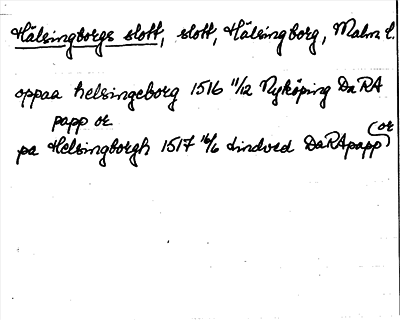 Hälsingborgs slott, slott, Hälsingborg, Malm l.
oppaa helsingeborg 1516 11/12 Nyköping DaRA
papp or
pa Helsingborgh 1517 16/6 Lindved DaRApapp (or)